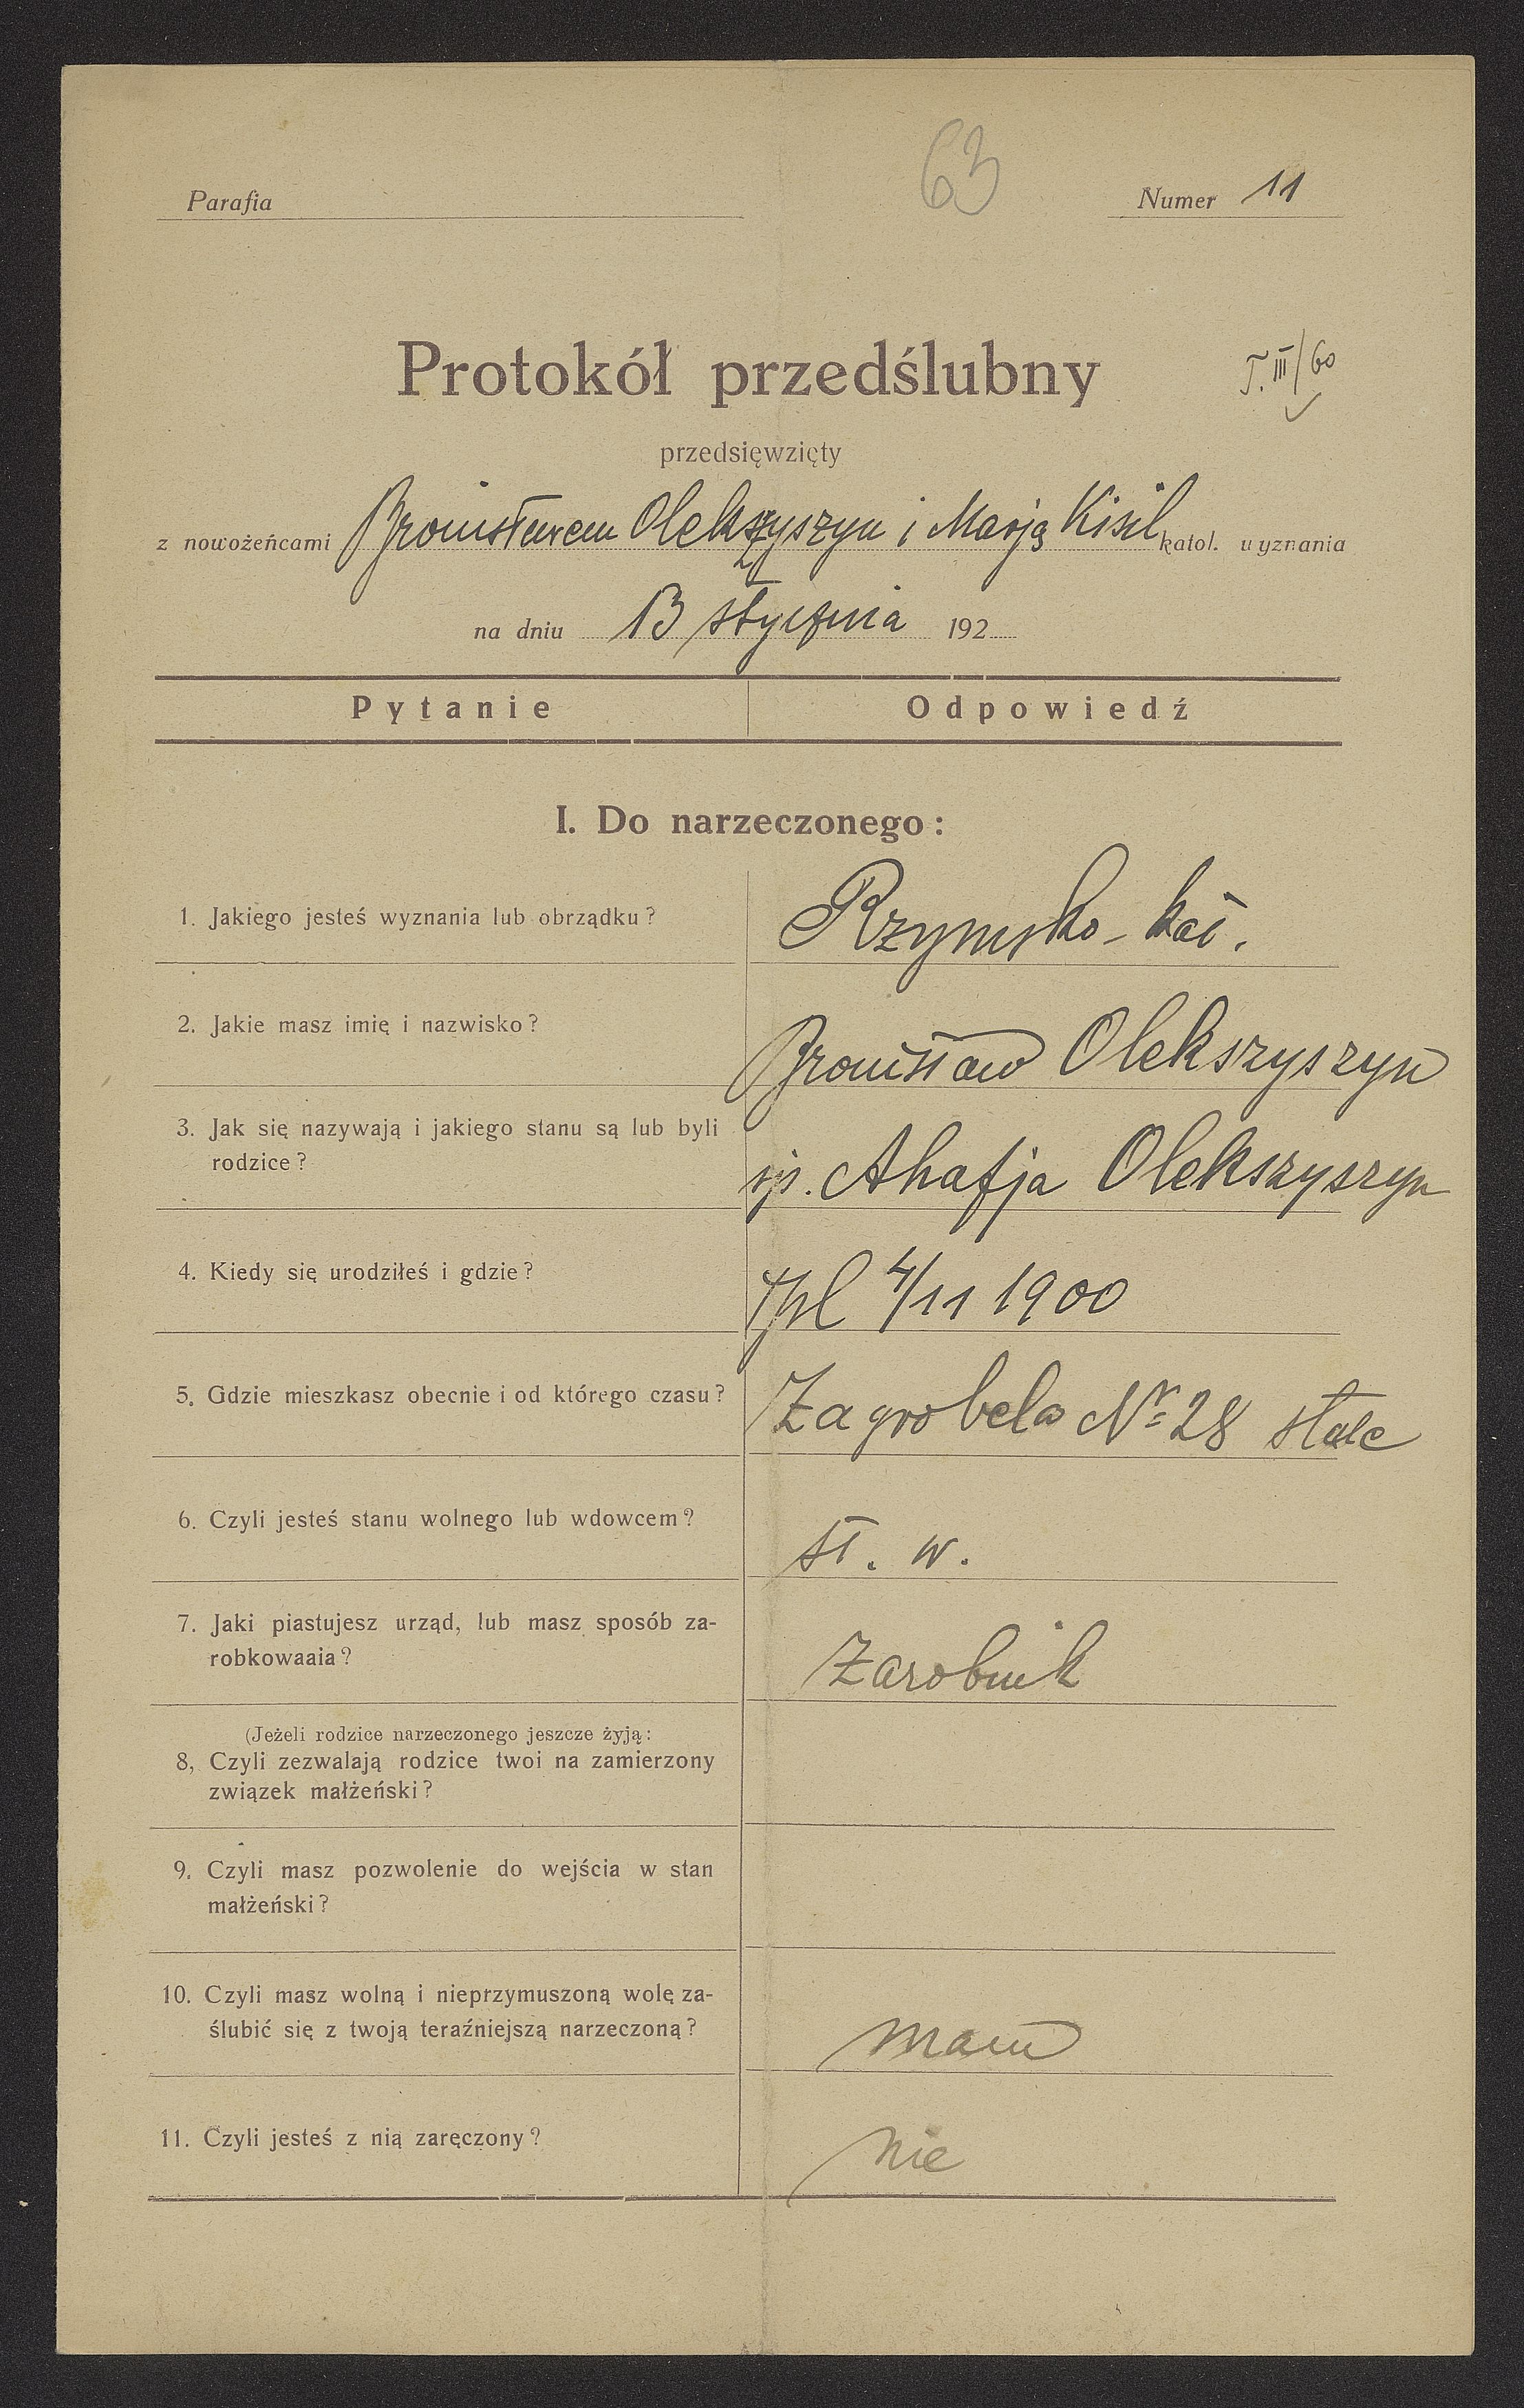 63
Parafia
Numer 11
Protokół przedślubny
T. III/60
przedsięwzięty
z nowożeńcami Bronisławem Olekszyszyn i Marją Kisil katol. wyznania
na dniu 13 stycznia 192
Pytanie Odpowiedź
I. Do narzeczonego:
1. Jakiego jesteś wyznania lub obrządku? Rzymsko-kat.
2. Jakie masz imię i nazwisko? Bronisław Olekszyszyn
3. Jak się nazywają i jakiego stanu są lub byli
rodzice? śp. Ahafja Olekszyszyn
4. Kiedy się urodziłeś i gdzie? Tpl 4/11 1900
5. Gdzie mieszkasz obecnie i od którego czasu? Zagrobela Nr 28 stale
6. Czyli jesteś stanu wolnego lub wdowcem? st. w.
7. Jaki piastujesz urząd, lub masz sposób za-
robkowaaia? Zarobnik
(Jeżeli rodzice narzeczonego jeszcze żyją:
8, Czyli zezwalają rodzice twoi na zamierzony
związek małżeński?
9. Czyli masz pozwolenie do wejścia w stan
małżeński?
10. Czyli masz wolną i nieprzymuszoną wolę za-
ślubić się z twoją teraźniejszą narzeczoną? mam
11. Czyli jesteś z nią zaręczony? nie